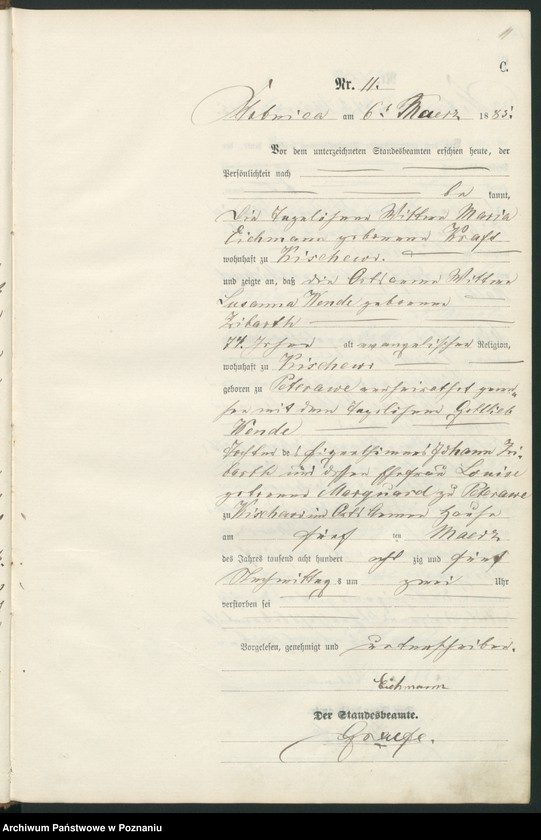 C.
Nr. 11.
am 6t Maerz 1885.
Vor dem unterzeichneten Standesbeamten erschien heute, der
Persönlichkeit nach
be kannt,
die Tagelöhner Wittwe Maria
Eichmann geborene Kraft
wohnhaft zu Kischewo.
und zeigte an, daß die Ortsarme Wittwe
Susanna Wende geborene
Zibarth
74 Jahre alt evangelischer Religion,
wohnhaft zu Kischewo
geboren zu Peterawe verheirathet gewe-
sen mit dem Tagelöhner Gottlieb
Wende
Tochter des Eigenthümers Johann Zi-
barth und dessen Ehefrau Louise
geborene Marquard zu Peterawe
zu Kischewo im Orts Armen Hause
am fünf ten Maerz
des Jahres tausend acht hundert acht zig und fünf
Nachmittags um zwei Uhr
verstorben sei
Vorgelesen, genehmigt und unterschrieben.
Eichmann
Der Standesbeamte.
Archiwum Państwowe w Poznaniu